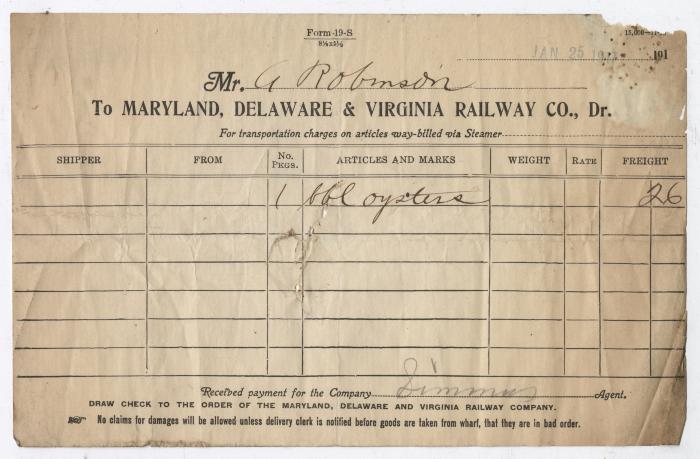 Form-19-S
8½x5½
15,000-11-
JAN 25 191
Mr. A Robinson
To MARYLAND, DELAWARE & VIRGINIA RAILWAY CO., Dr.
For transportation charges on articles way-billed via Steamer
SHIPPER FROM No. Pkgs. ARTICLES AND MARKS WEIGHT RATE FREIGHT
1 bbl oysters 26
Received payment for the Company Agent.
DRAW CHECK TO THE ORDER OF THE MARYLAND, DELAWARE AND VIRGINIA RAILWAY COMPANY.
No claims for damages will be allowed unless delivery clerk is notified before goods are taken from wharf, that they are in bad order.